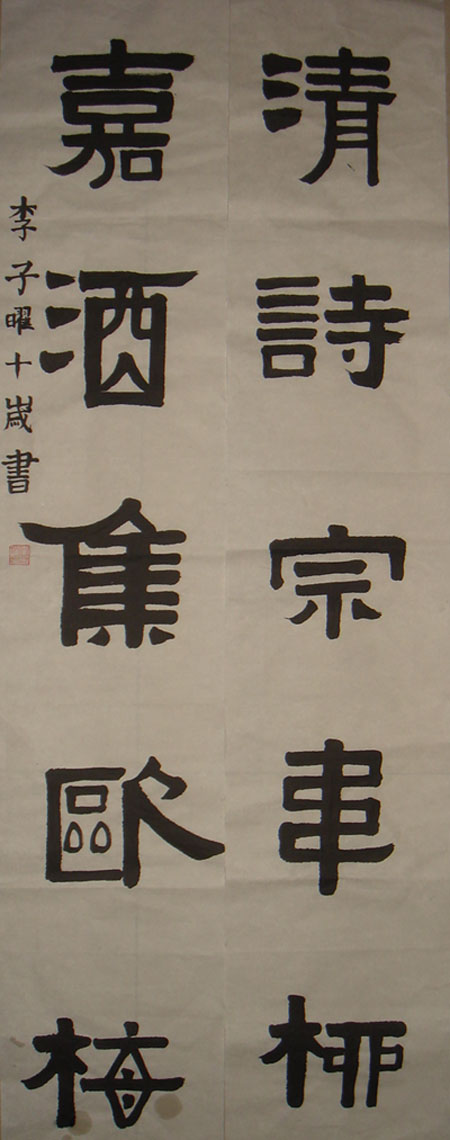 清詩宗韋柳
嘉酒集歐梅
李子曜十歲書